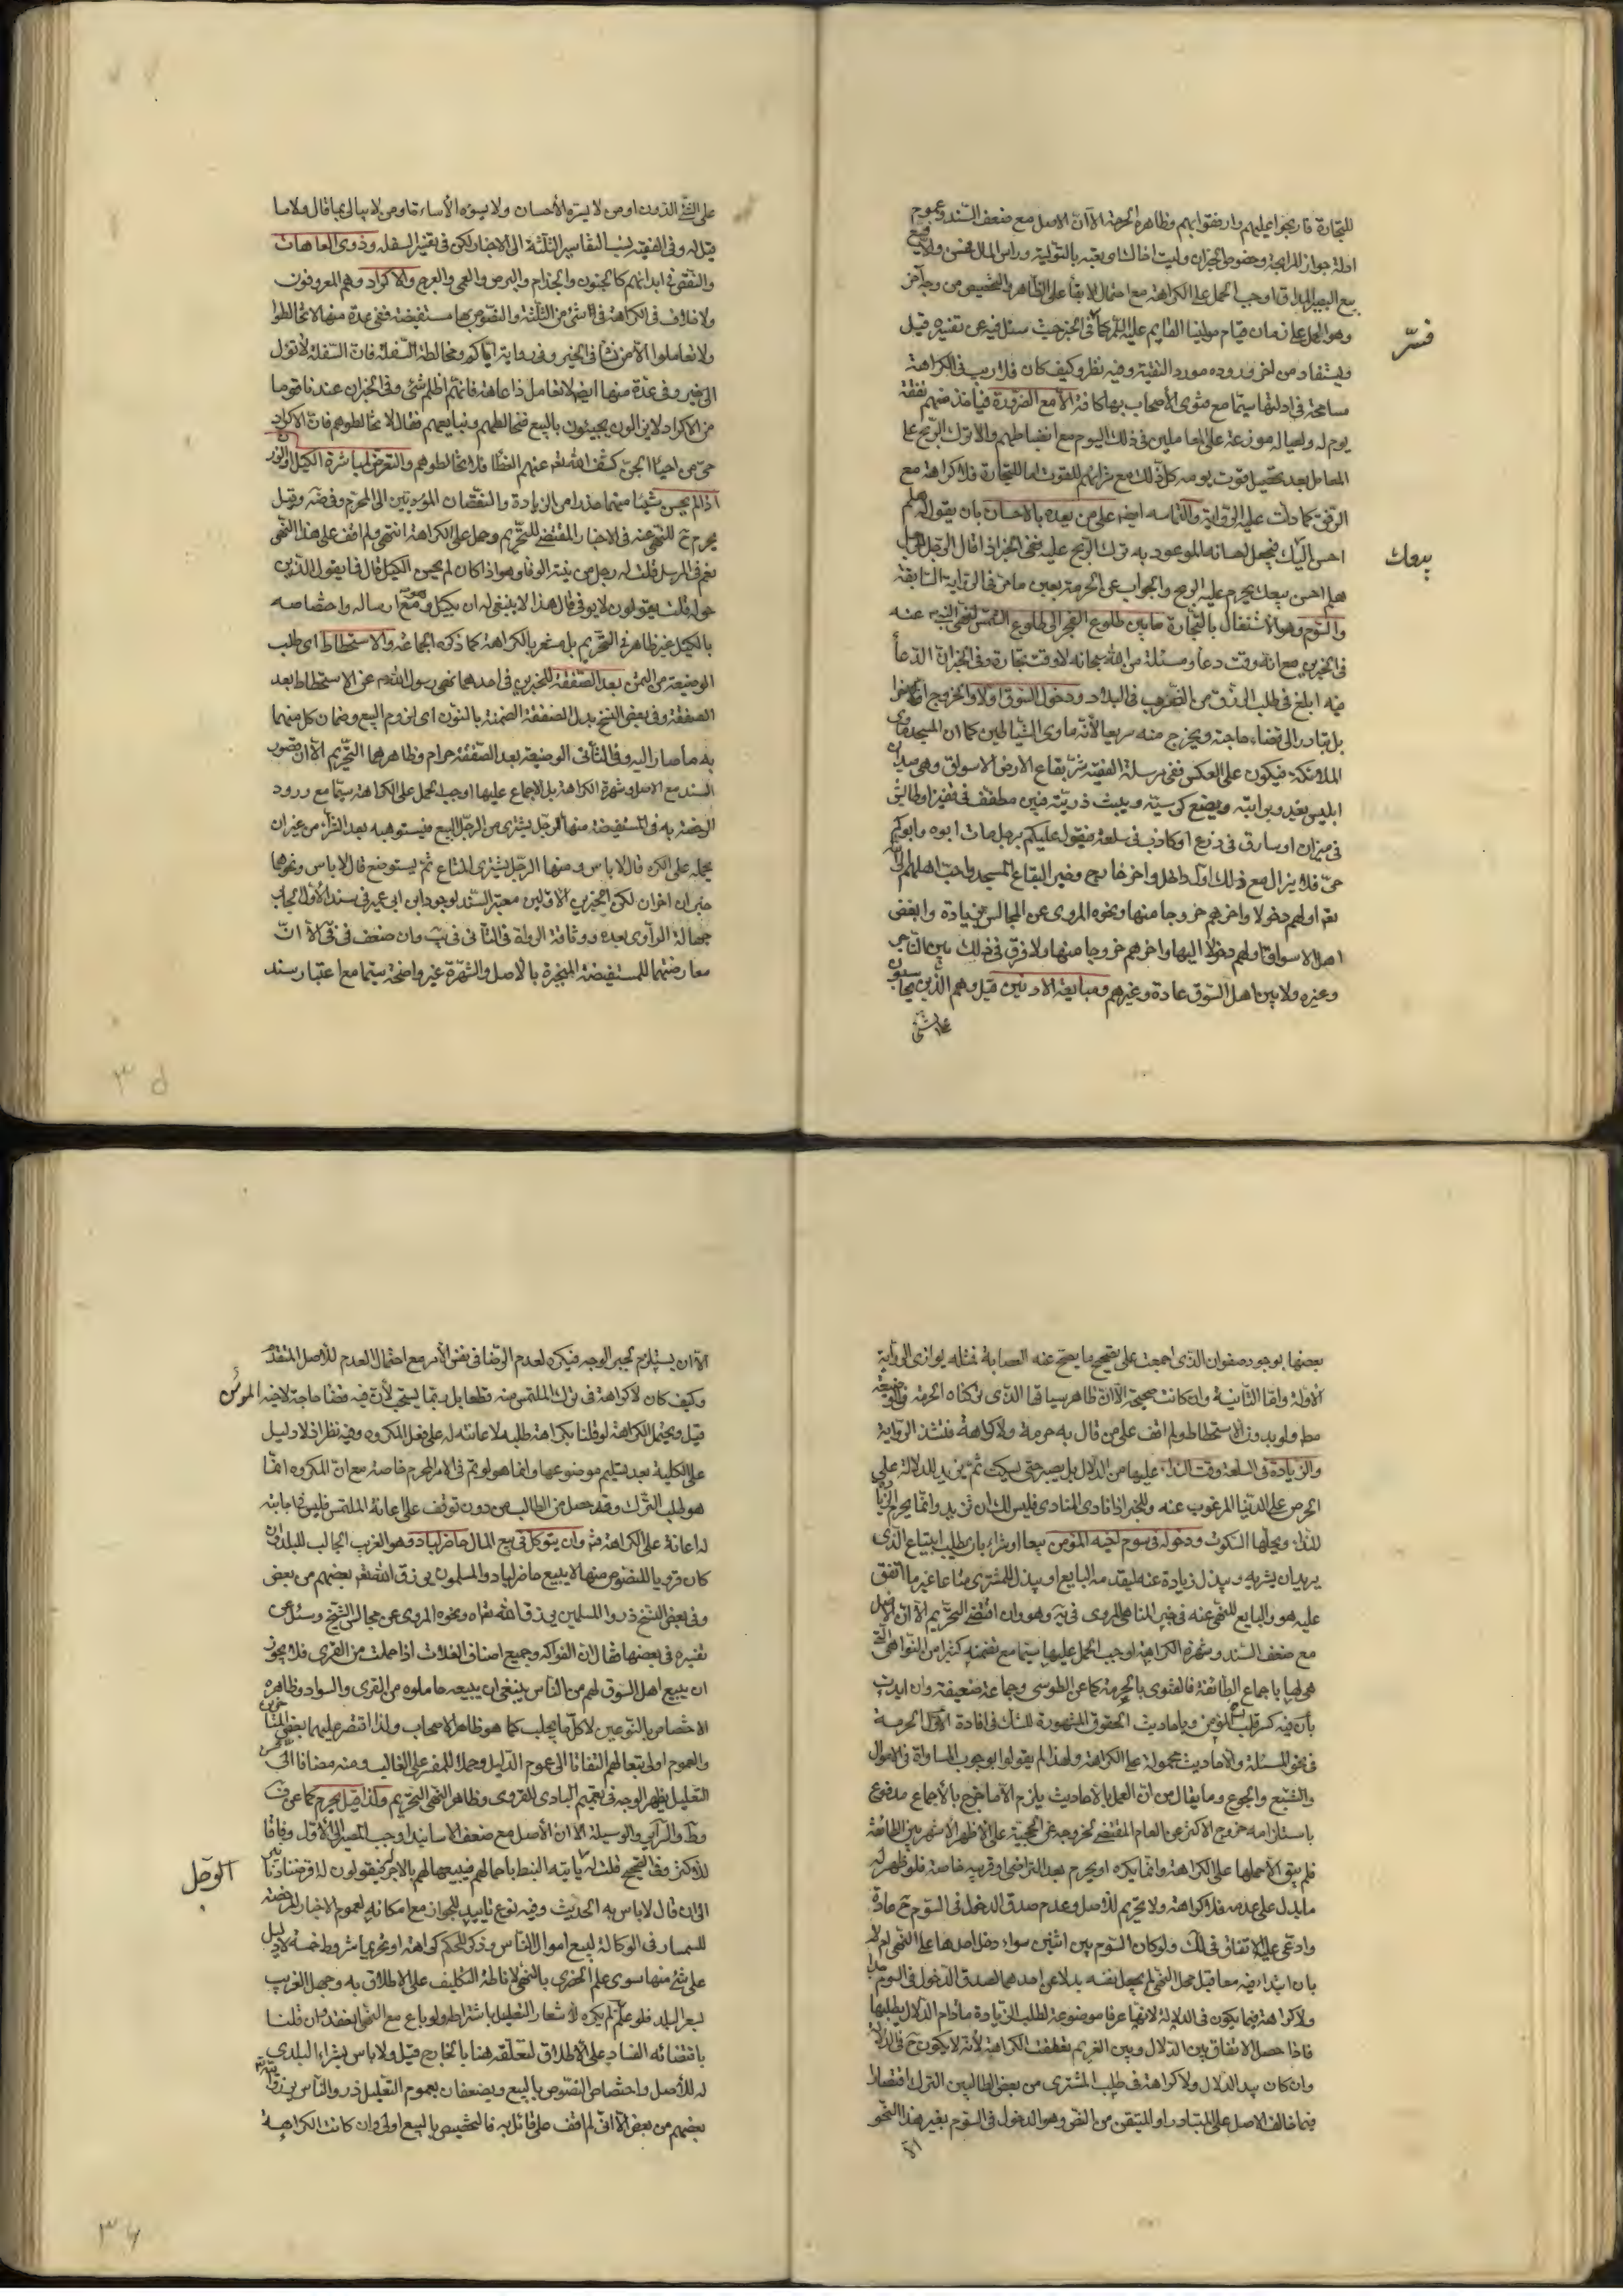 للتجارة فاربحوا عليهم وارفقوا بهم وظاهره الحرمة الا ان الاصل مع ضعف السند وعموم
ادلة جواز المرابحة وخصوص الخبران وليت اخاك الشاو يعتبه بالتولية وراس المال محسن ولا بيع
بيع البصير المداقة اوجب الحمل على الكراهة مع احتمال الابقاء على الظاهر والتخصيص من وجه آخر
وهو الحمل على زمان قيام مولينا القايم عليه السلم كما في الخبر حيث سئل فيه عن تفسيره قيل
فسّر
ويستفاد من اخر وروده مورد التقية وفيه نظر وكيف كان فلا ريب في الكراهة
مسامحة في ادلتها سيما مع فتوى الأصحاب بها كافة الا مع الضرورة فياخذ منهم نفقة
يوم له ولعياله موزعة على المعاملين في ذلك اليوم مع انضباطهم والا ترك الربح على
المعامل بعد تحصيل قوت يومه كل ذلك مع شرائهم للقوت اما للتجارة فلا كراهة مع
الرفق كما دلت عليه الرواية والتماسه ايضا على من بعده بالاحسان بان يقول له هلم
احسن اليك فيجعل احسانه الموعود به ترك الربح عليه ففي الخبر اذا قال الرجل للرجل
هلم احسن بيعك يحرم عليه الربح والجواب عن الحرمة بعين ما مر في الرواية السابقة
بيعك
والسوم وهو الاشتغال بالتجارة ما بين طلوع الفجر الى طلوع الشمس لنهي النبي ص عنه
في الخبرين مع انه وقت دعاء ومسئلة من الله سبحانه لا وقت تجارة وفي الخبران الدعاء
فيه ابلغ في طلب الرزق من الضرب في البلاد ودخول السوق اولا والخروج اخرا
بل تبادر الى قضاء حاجته ويخرج منه سريعا لأنه ماوى الشياطين كما ان المسجد ماوى
الملائكة فيكون على العكس ففي مرسلة الفقيه شر بقاع الارض الاسواق وهي ميدان
ابليس يغدو برايته ويضع كرسيه ويبث ذريته فبين مطفف في قفيز او طايش
في ميزان او سارق في ذرع او كاذب في سلعة فيقول عليكم برجل مات ابوه وابوكم
حي فلا يزال مع ذلك اول داخل واخر خارج وخير البقاع المسجد واحب اهلها الى الله
تعم اولهم دخولا واخرهم خروجا منها ونحوه المروي عن المجالس بزيادة وابغض
اهل الاسواق اولهم دخولا اليها واخرهم خروجا منها ولا فرق في ذلك بين التاجر
وغيره ولا بين اهل السوق عادة وغيرهم ومبايعة الادنين قيل وهم الذين يحاسبون
على الشي
على الشيء الدون او من لا يسره الأحسان ولا يسوءه الأساءة او من لا يبالي بما قال ولا ما
قيل له وفي الفقيه نسب التفاسير الثلثة الى الاخبار لكن في تفسير السفلة وذوي العاهات
والنقص في ابدانهم كالجنون والجذام والبرص والعمى والعرج والاكراد وهم المعروفون
ولا خلاف في الكراهة في شيء من الثلثة والنصوص بها مستفيضة ففي عدة منها لا تخالطوا
ولا تعاملوا الا من نشأ في الخير وفي رواية اياكم ومخالطة السفلة فان السفلة لا تؤل
الى خير وفي عدة منها ايضا لا تعامل ذا عاهة فانهم اظلم شئ وفي الخبران عندنا قوما
من الاكراد لا يزالون يجيئون بالبيع فنخالطهم ونبايعهم فقال لا تخالطوهم فان الاكراد
حي من احياء الجن كشف الله تعم عنهم الغطاء فلا تخالطوهم والتعرض لمباشرة الكيل والوزن
اذا لم يحسن شيئا منهما حذرا من الزيادة والنقصان المؤديين الى المحرم وفي ضه وقيل
يحرم ح للنهي عنه في الاخبار المقتضي للتحريم وحمل على الكراهة انتهى ولم اقف على هذا النهي
نعم في المرسل قلت له رجل من نيته الوفا وهو اذا كان لم يحسن الكيل قال فما يقول الذين
حوله قلت يقولون لا يوفي قال هذا لا ينبغي له ان يكيل وهو مع ارساله واختصاصه
بالكيل غير ظاهر في التحريم بل مشعر بالكراهة كما ذكره الجماعة والاستحطاط اي طلب
الوضيعة من الثمن بعد الصفقة للخبرين في احدهما نهى رسول الله ص عن الاستحطاط بعد
الصفقة وفي بعض النسخ بدل الصفقة الضمنة بالنون اي لزوم البيع وضمان كل منهما
به ما صار اليه وفي الثاني الوضيعة بعد الصفقة حرام وظاهرهما التحريم الا ان قصور
السند مع الاصل وشهرة الكراهة بل الاجماع عليها اوجب الحمل على الكراهة سيما مع ورود
الرخصة به في المستفيضة منها الرجل يشتري من الرجل البيع فيستوهبه بعد الشراء من غير ان
يحمله على الكره قال لا باس ومنها الرجل يشتري المتاع ثم يستوضع قال لا باس ونحوها
خبران اخران لكن الخبرين الاولين معتبر السند لوجود ابن ابي عمير في سند الاول الجابر
جهالة الراوي بعده ووثاقة الرواة في الثاني في يب وان ضعف في في الا ان
معارضتهما للمستفيضة المنجبرة بالاصل والشهرة غير واضحة سيما مع اعتبار سند
بعضها بوجود صفوان الذي اجمعت على تصحيح ما يصح عنه العصابة فمثله يوازي الرواية
الاولة واما الثانية وان كانت صحيحة الا ان ظاهر سياقها الذي تركناه الحرمة في الوضيعة
مط ولو بدون الاستحطاط ولم اقف على من قال به حرمة ولا كراهة فتشذ الرواية
والزيادة في السلعة وقت النداء عليها من الدلال بل يصبر حتى يسكت ثم يزيد للدلالة على
الحرص على الدنيا المرغوب عنه وللخبر اذا نادى المنادي فليس لك ان تزيد وانما يحرم الزيادة
النداء ويحلها السكوت ودخوله في سوم اخيه المؤمن بيعا او شراء بان يطلب ابتياع الذي
يريد ان يشتريه ويبذل زيادة عنه ليقدمه البايع او يبذل للمشتري متاعا غير ما اتفق
عليه هو والبايع للنهي عنه في خبر المناهي المروي في يه وهو وان اقتضى التحريم الا ان الاصل
مع ضعف السند وشهرة الكراهة اوجب الحمل عليها سيما مع تضمنه كثيرا من النواهي التي
هي لها باجماع الطائفة فالفتوى بالحرمة كما عن الطوسي وجماعة ضعيفة وان ايدت
بأن فيه كسر قلب المؤمن وباحاديث الحقوق المشهورة للشك في افادة الاول الحرمة
في نحو المسئلة والاحاديث محمولة على الكراهة ولهذا لم يقولوا بوجوب المساواة في الاموال
والشبع والجوع وما يقال من ان العمل بالأحاديث يلزم الا ما خرج بالأجماع مدفوع
باستلزامه خروج الاكثر عن العام المقتضي لخروجه عن الحجية على الاظهر الاشهر بين الطائفة
فلم يبق الا حملها على الكراهة وانما يكره او يحرم بعد التراضي او قربه خاصة فلو ظهر له
ما يدل على عدمه فلا كراهة ولا تحريم للاصل وعدم صدق الدخول في السوم ح عادة
وادعى عليه الاتفاق في لك ولو كان السوم بين اثنين سواء دخل احدهما على النهي ام لا
بان ابتدا فيه معا قبل محل النهي لم يجعل نفسه بدلا عن احدهما لصدق الدخول في السوم
ولا كراهة فيما يكون في الدلالة لانها عرفا موضوعة لطلب الزيادة ما دام الدلال يطلبها
فاذا حصل الاتفاق بين الدلال وبين الغريم تعلقت الكراهة لأنه لا يكون ح في الدلالة
وان كان بيد الدلال ولا كراهة في طلب المشتري من بعض الطالبين الترك اقتصارا
فيما خالف الاصل على المتبادر او المتيقن من النص وهو الدخول في السوم بغير هذا النحو
الا
الا ان يستلزم لجبر الوجه فيكره لعدم الرضا في نفس الأمر مع احتمال العدم للأصل المتقدم
وكيف كان لا كراهة في ترك الملتمس منه قطعا بل ربما يستحب لأن فيه قضاء حاجة لاخيه المؤمن
قيل ويحتمل الكراهة لو قلنا بكراهة طلبه لاعانته له على فعل المكروه وفيه نظر اذ لا دليل
على الكلية بعد تسليم موضوعها وانما هو لو تم في الامر المحرم خاصة مع ان المكروه انما
هو طلب الترك وقد حصل من الطالب من دون توقف على اعانة الملتمس فليس في اجابته
له اعانة على الكراهة وان يتوكل في بيع المال حاضر لباد وهو الغريب الجالب للبلد وان
كان قرويا للنصوص منها لا يبيع حاضر لباد والمسلمون يرزق الله تعم بعضهم من بعض
وفي بعض النسخ ذروا المسلمين يرزق الله تعم اه ونحوه المروي عن مجالس الشيخ وسئل عن
تفسيره في بعضها فقال ان الفواكه وجميع اصناف الغلات اذا حملت من القرى فلا يجوز
ان يبيع اهل السوق لهم من الناس ينبغي ان يبيعه حاملوه من القرى والسواد وظاهره
الاختصاص بالنوعين لا كل ما يجلب كما هو ظاهر الاصحاب ولذا اقتصر عليهما بعض المتاخرين
والعموم اولى تبعا لهم التفاتا الى عموم الدليل وحملا للمفسر على الغالب ومنه مضافا الى
التعليل يظهر الوجه في تعميم البادي للقروي وظاهر النهي التحريم ولذا قيل يحرم كما عن ف
وط والرائي والوسيلة الا ان الأصل مع ضعف الاسانيد اوجب المصير الى الأول وفاقا
للأكثر وفي الصحيح قلت له يأتيه النبط باحمالهم فيبيعها لهم بالاجر فيقولون له اقرضنا دنانير
الى ان قال لا باس به الحديث وفيه نوع تاييد للجواز مع امكانه لعموم الاخبار المرخصة
الرجل
للسمسار في الوكالة لبيع اموال الناس وذكر للحكم كراهة او تحريما شروط خمسة لا دليل
على شئ منها سوى علم الحضري بالنهي لا ناطة التكليف على الاطلاق به وجهل الغريب
لسعر البلد فلو علم لم يكره لاشعار التعليل باشتراطه ولو باع مع النهي انعقد وان قلنا
باقتضائه الفساد على الأطلاق لتعلقه هنا بالخارج قيل ولا باس بشراء البلدي
له للأصل واختصاص النصوص بالبيع ويضعفان بعموم التعليل ذروا الناس يرزق الله
بعضهم من بعض الا اني لم اقف على قائل به فالتخصيص بالبيع اولى وان كانت الكراهة